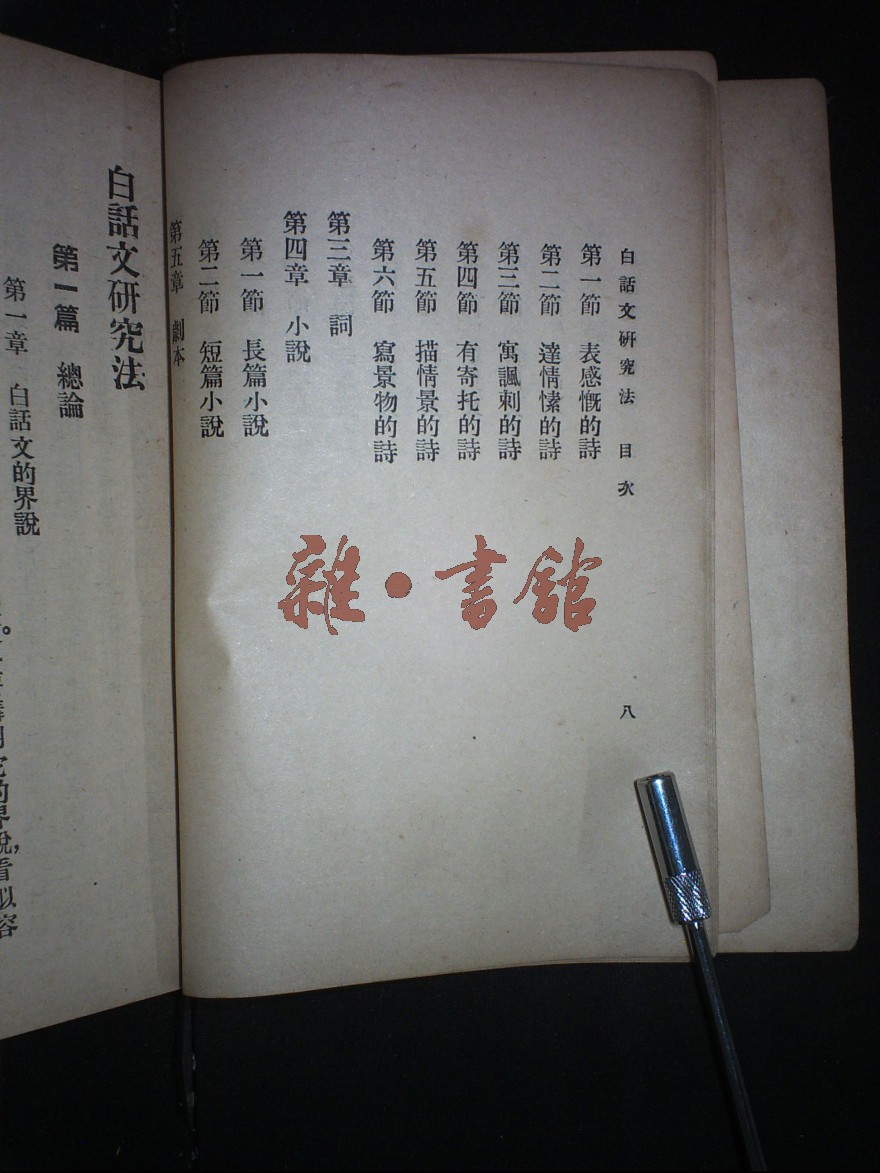 白話文研究法 目次
八
第一節 表感慨的詩
第二節 達情愫的詩
第三節 寓諷刺的詩
第四節 有寄托的詩
第五節 描情景的詩
第六節 寫景物的詩
第三章 詞
第四章 小說
第一節 長篇小說
第二節 短篇小說
第五章 劇本
雜·書館
白話文研究法
第一篇 總論
第一章 白話文的界說
的界說，看似容